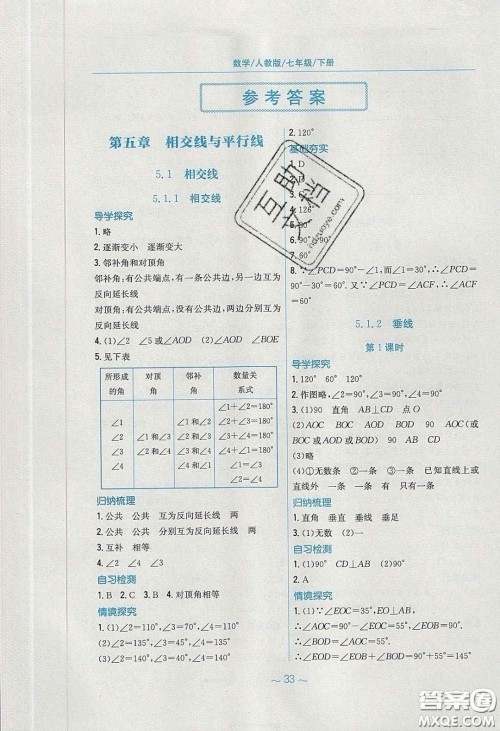 数学/人教版/七年级/下册
参考答案
第五章 相交线与平行线
5.1 相交线
5.1.1 相交线
导学探究
1.略
2.逐渐变小 逐渐变大
3.邻补角和对顶角
邻补角:有公共端点,有一条公共边,另一边互为
反向延长线
对顶角:有公共端点,没有公共边,两边分别互为
反向延长线
4.(1)∠2 ∠5或∠AOD (2)∠AOD ∠BOE
5.见下表
所形成的角 对顶角 邻补角 数量关系式
∠1 ∠2 ∠3 ∠4
∠1和∠2
∠1和∠3 ∠2和∠3
∠2和∠4 ∠3和∠4
∠1和∠4
∠1+∠2=180°
∠2+∠3=180°
∠3+∠4=180°
∠1+∠4=180°
∠1=∠3
∠2=∠4
归纳梳理
1.公共 公共 互为反向延长线 两
2.公共 公共 分别互为反向延长线 两
3.互补 相等
自习检测
1.B 2.B 3.C 4.对顶角相等
情境探究
1.(1)∠2=110°,∠3=70°,∠4=110°
(2)∠2=135°,∠3=45°,∠4=135°
(3)∠2=140°,∠4=140°
2.120°
基础夯实
1.D
4.126°
8.∵∠PCD=90°-∠1,而∠1=30°,∴∠PCD=
90°-30°=60°.又∵∠PCD=∠ACF,∴∠ACF=
60°.
5.1.2 垂线
第1课时
导学探究
1.120° 60° 120°
2.作图略,∠2=90°,∠3=90°,∠4=90°
3.(1)90 直角 AB⊥CD 点O
(2)AOC BOC AOD BOD 90 AOC(或
BOC或AOD或BOD) 90 AB⊥CD
(3)略
(4)①无数条 ②一条 一条 ③已知直线上或
直线外 一条 1条 有且只有
归纳梳理
1.直角 垂直 垂线 垂足
3.(1)无数 (2)一
自习检测
1.(1)90° CD⊥AB (2)90°
2.A
情境探究
1.(1)∵∠EOC=35°,EO⊥AB,
∴∠AOC=90°-∠EOC=55°,∠EOB=90°.
∴∠BOD=∠AOC=55°.
∴∠DOE=∠EOB+∠BOD=90°+55°=145°.
~ 33 ~
互助文档
hzwenye.com
答案圈
MXQE.COM